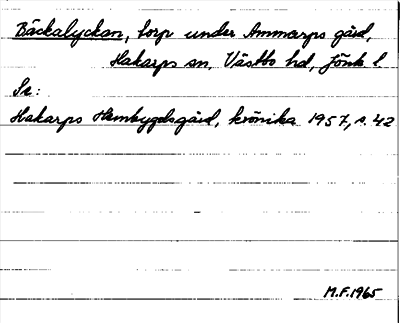 Bäckalyckan, torp under Ammarps gård,
Hakarps sn, Västbo hd, Jönk l.
Se:
Hakarps Hembygdsgård, krönika 1957, s. 42
M.F. 1965